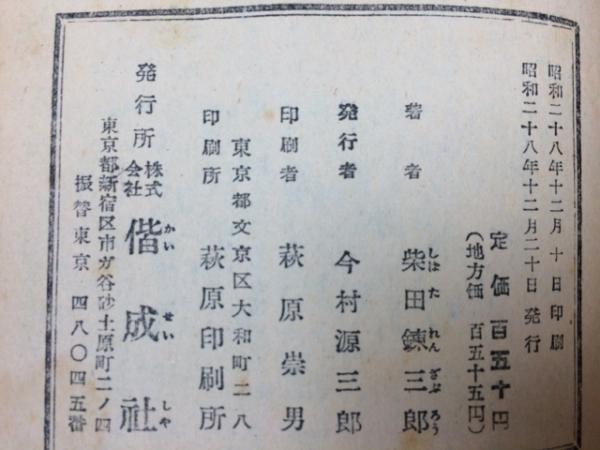 昭和二十八年十二月 十 日印刷
昭和二十八年十二月二十日発行
定価 百五十円
(地方価 百五十五円)
著者 柴田錬三郎
しばた れんざぶろう
発行者 今村源三郎
印刷者 萩原崇男
東京都文京区大和町二八
印刷所 萩原印刷所
発行所 株式会社 偕成社
かい せい しや
東京都新宿区市ガ谷砂土原町二ノ四
振替東京 四八〇四五番